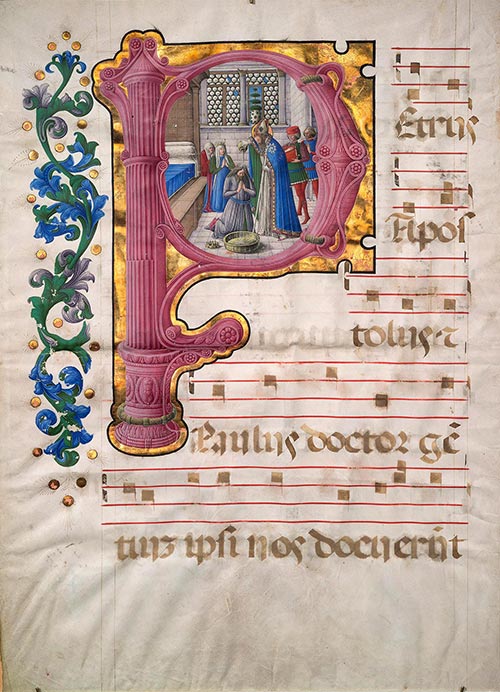 PEtrus
Apos
tolus · ⁊
Paulus doctor gē
tiuʒ ipsi nos docuerūt